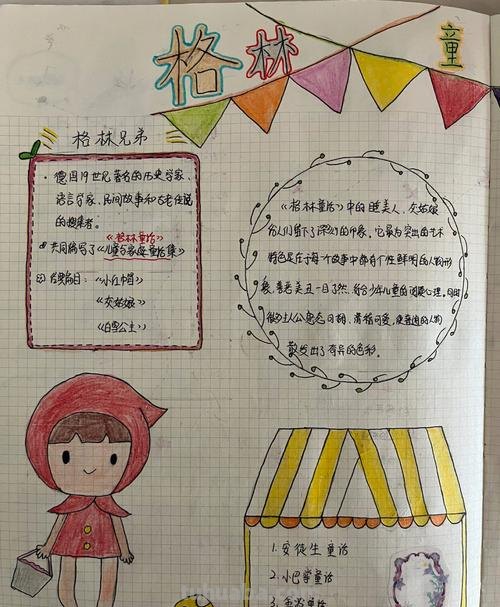 格林 童
格林兄弟
· 德国19世纪著名的历史学家、
语言学家,民间故事和古老传说
的搜集者。
《格林童话》
共同编写了《儿童与家庭童话集》
代表篇目:《小红帽》
《灰姑娘》
《白雪公主》
《格林童话》中的睡美人、灰姑娘
给人们留下了深刻的印象。它最为突出的艺术
特色是在于每个故事中都有个性鲜明的人物形
象,善恶美丑一目了然,符合少年儿童的阅读心理。同时
主人公憨态可掬、滑稽可爱,使普通的人物
散发出了奇异的色彩。
1. 安徒生童话
2. 小巴掌童话
3.